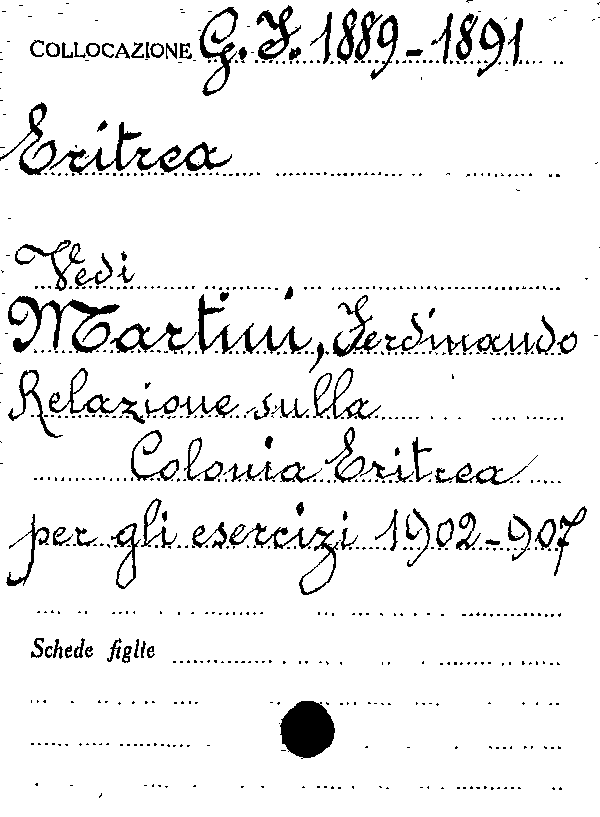 COLLOCAZIONE G. I. 1889-1891
Eritrea
Vedi
Martini, Ferdinando
Relazione sulla
Colonia Eritrea
per gli esercizi 1902-907
Schede figlie